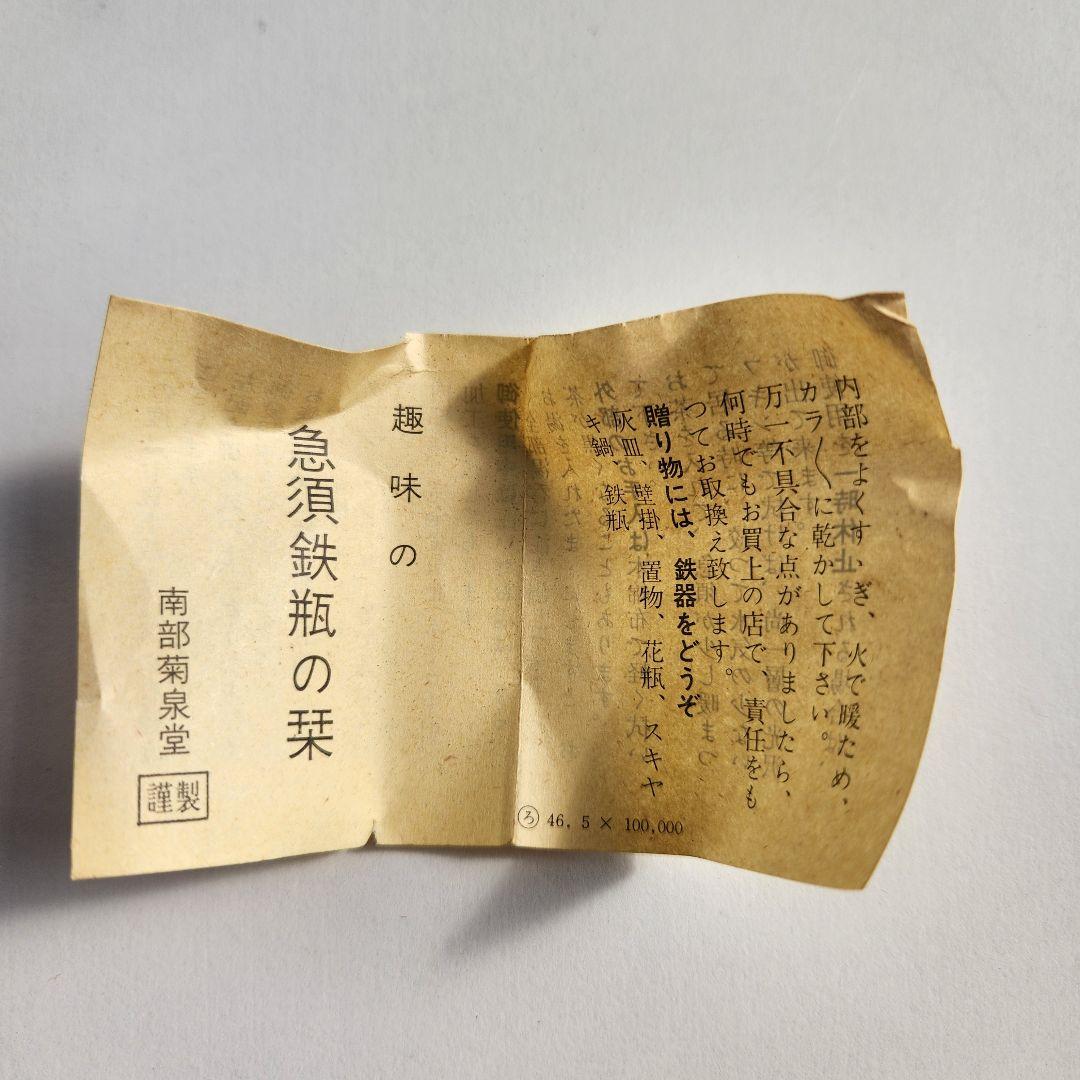 内部をよくすゝぎ、火で暖ため、
カラ〳〵に乾かして下さい。
万一不具合な点がありましたら、
何時でもお買上の店で、責任をも
つてお取換え致します。
贈り物には、鉄器をどうぞ
灰皿、壁掛、置物、花瓶、スキヤ
キ鍋、鉄瓶
㋺ 46. 5 × 100,000
趣味の
急須鉄瓶の栞
南部菊泉堂
謹製